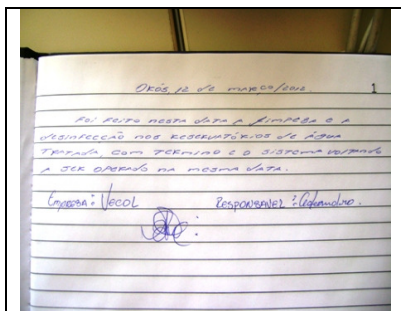 Orós, 12 de março/2012. 1
Foi feito nesta data a limpesa e a
desinfecção nos reservatórios de água
tratada, com termino e o sistema voltando
a ser operado na mesma data.
Empresa: Vecol Responsavel: